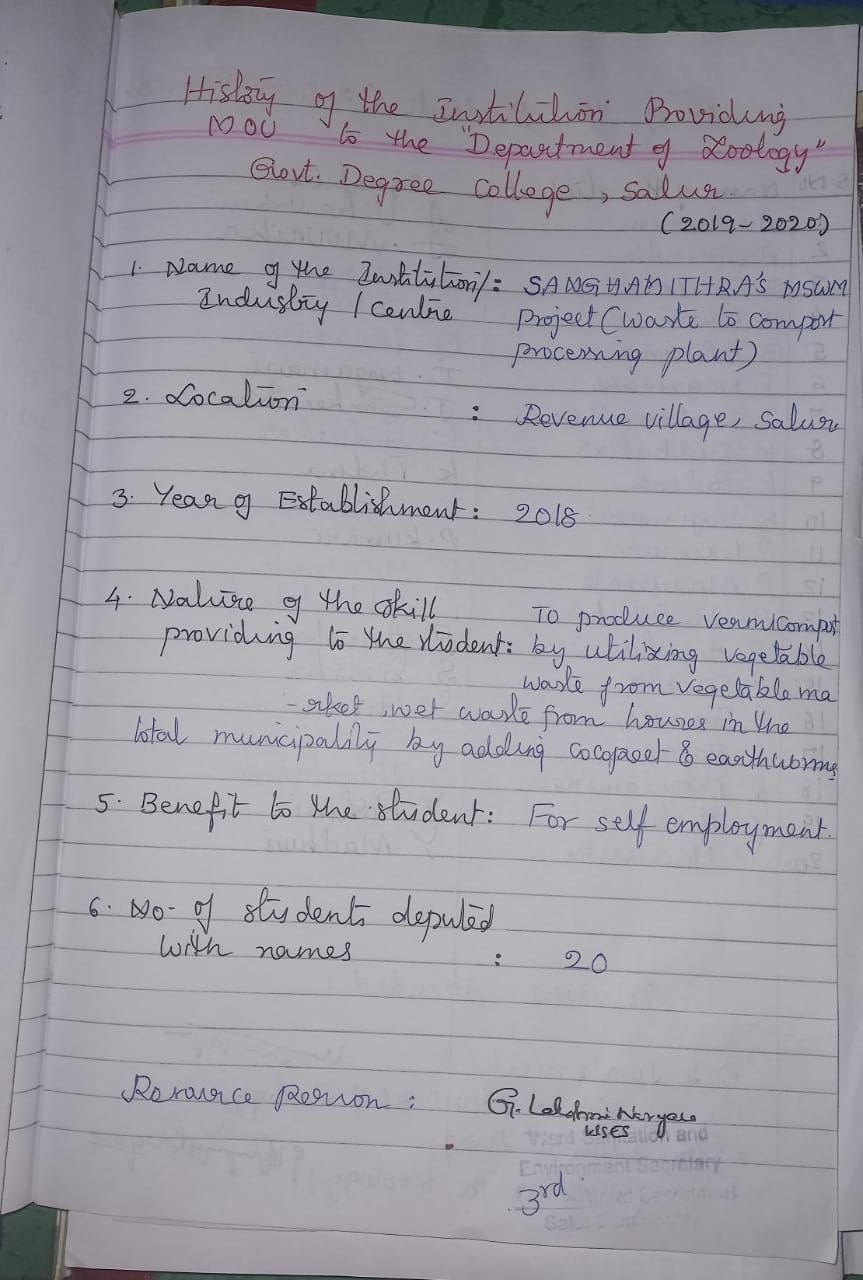 History of the Institution Providing
MOU to the "Department of Zoology"
Govt. Degree College, Salur.
(2019-2020)
1. Name of the Institution/: SANGHAMITHRA'S MSWM
Industry / Centre project (waste to compost
processing plant)
2. Location : Revenue village, Salur
3. Year of Establishment: 2018
4. Nature of the skill To produce vermicompost
providing to the student: by utilizing vegetable
waste from vegetable ma
-rket, wet waste from houses in the
total municipality by adding cocopeet & earthworms
5. Benefit to the student: For self employment.
6. No- of students deputed
with names : 20
Resource Person : G. Lakshmi
WSES
Ward Sanitation and
Environment Secretary
3rd Ward Secretariat